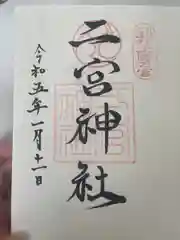 二宮神社
令和五年一月十一日